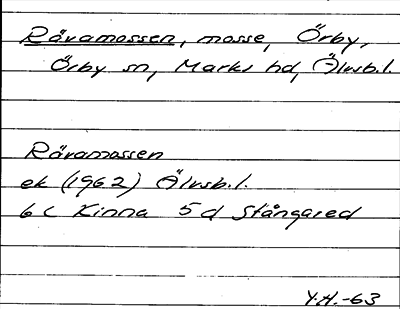 Råvamossen, mosse, Örby,
Örby sn, Marks hd, Älvsb.l.
Råvamossen
ek (1962) Älvsb.l.
6c Kinna 5d Stångared
Y.H.-63